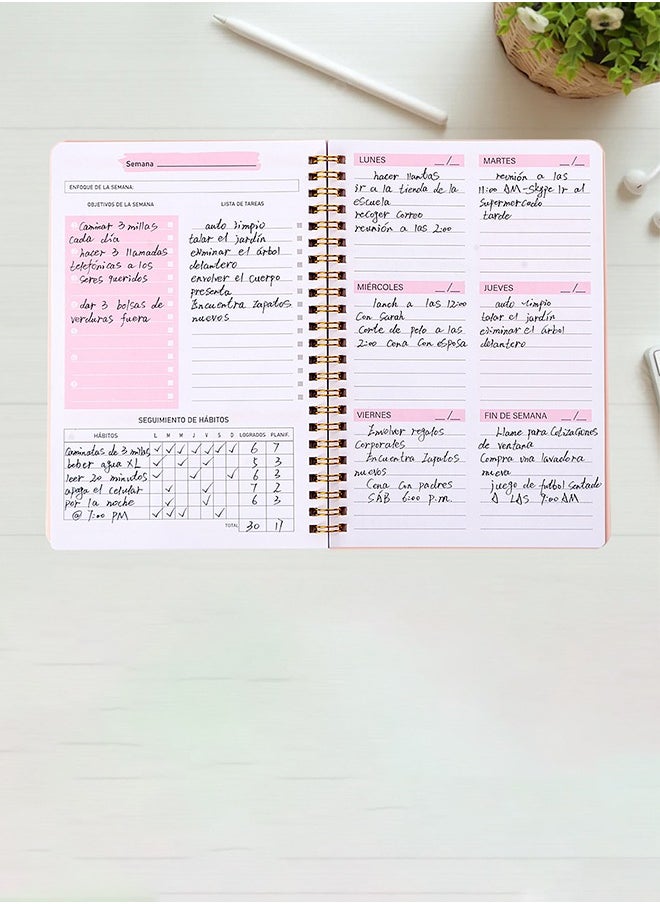 Semana
ENFOQUE DE LA SEMANA:
OBJETIVOS DE LA SEMANA
Caminar 3 millas
cada día
hacer 3 llamadas
telefónicas a los
seres queridos
dar 3 bolsas de
verduras fuera
LISTA DE TAREAS
auto limpio
talar el jardín
eliminar el árbol
delantero
envolver el cuerpo
presenta
Encuentra Zapatos
nuevos
SEGUIMIENTO DE HÁBITOS
HÁBITOS L M M J V S D LOGRADOS PLANIF.
caminatas de 3 millas ✓ ✓ ✓ ✓ ✓ ✓ ✓ 6 7
beber agua XL ✓ ✓ ✓ 5 3
leer 20 minutos ✓ ✓ ✓ 6 3
apaga el celular ✓ ✓ 7 2
por la noche ✓ ✓ 6 3
@ 7:00 PM ✓ ✓ ✓ ✓
TOTAL 30 17
LUNES __/__
hacer llantas
ir a la tienda de la
escuela
recoger correo
reunión a las 2:00
MARTES __/__
reunión a las
11:00 AM-Skype Ir al
Supermercado
tarde
MIÉRCOLES __/__
lanch a las 12:00
Con Sarah
Corte de pelo a las
2:00 Cena Con esposa
JUEVES __/__
auto limpio
talar el jardín
eliminar el árbol
delantero
VIERNES __/__
Envolver regalos
Corporales
Encuentra Zapatos
nuevos
Cena con padres
SÁB 6:00 p.m.
FIN DE SEMANA __/__
Llame para Cotizaciones
de ventana
Compra una lavadora
nueva
juego de futbol sentado
A LAS 9:00 AM